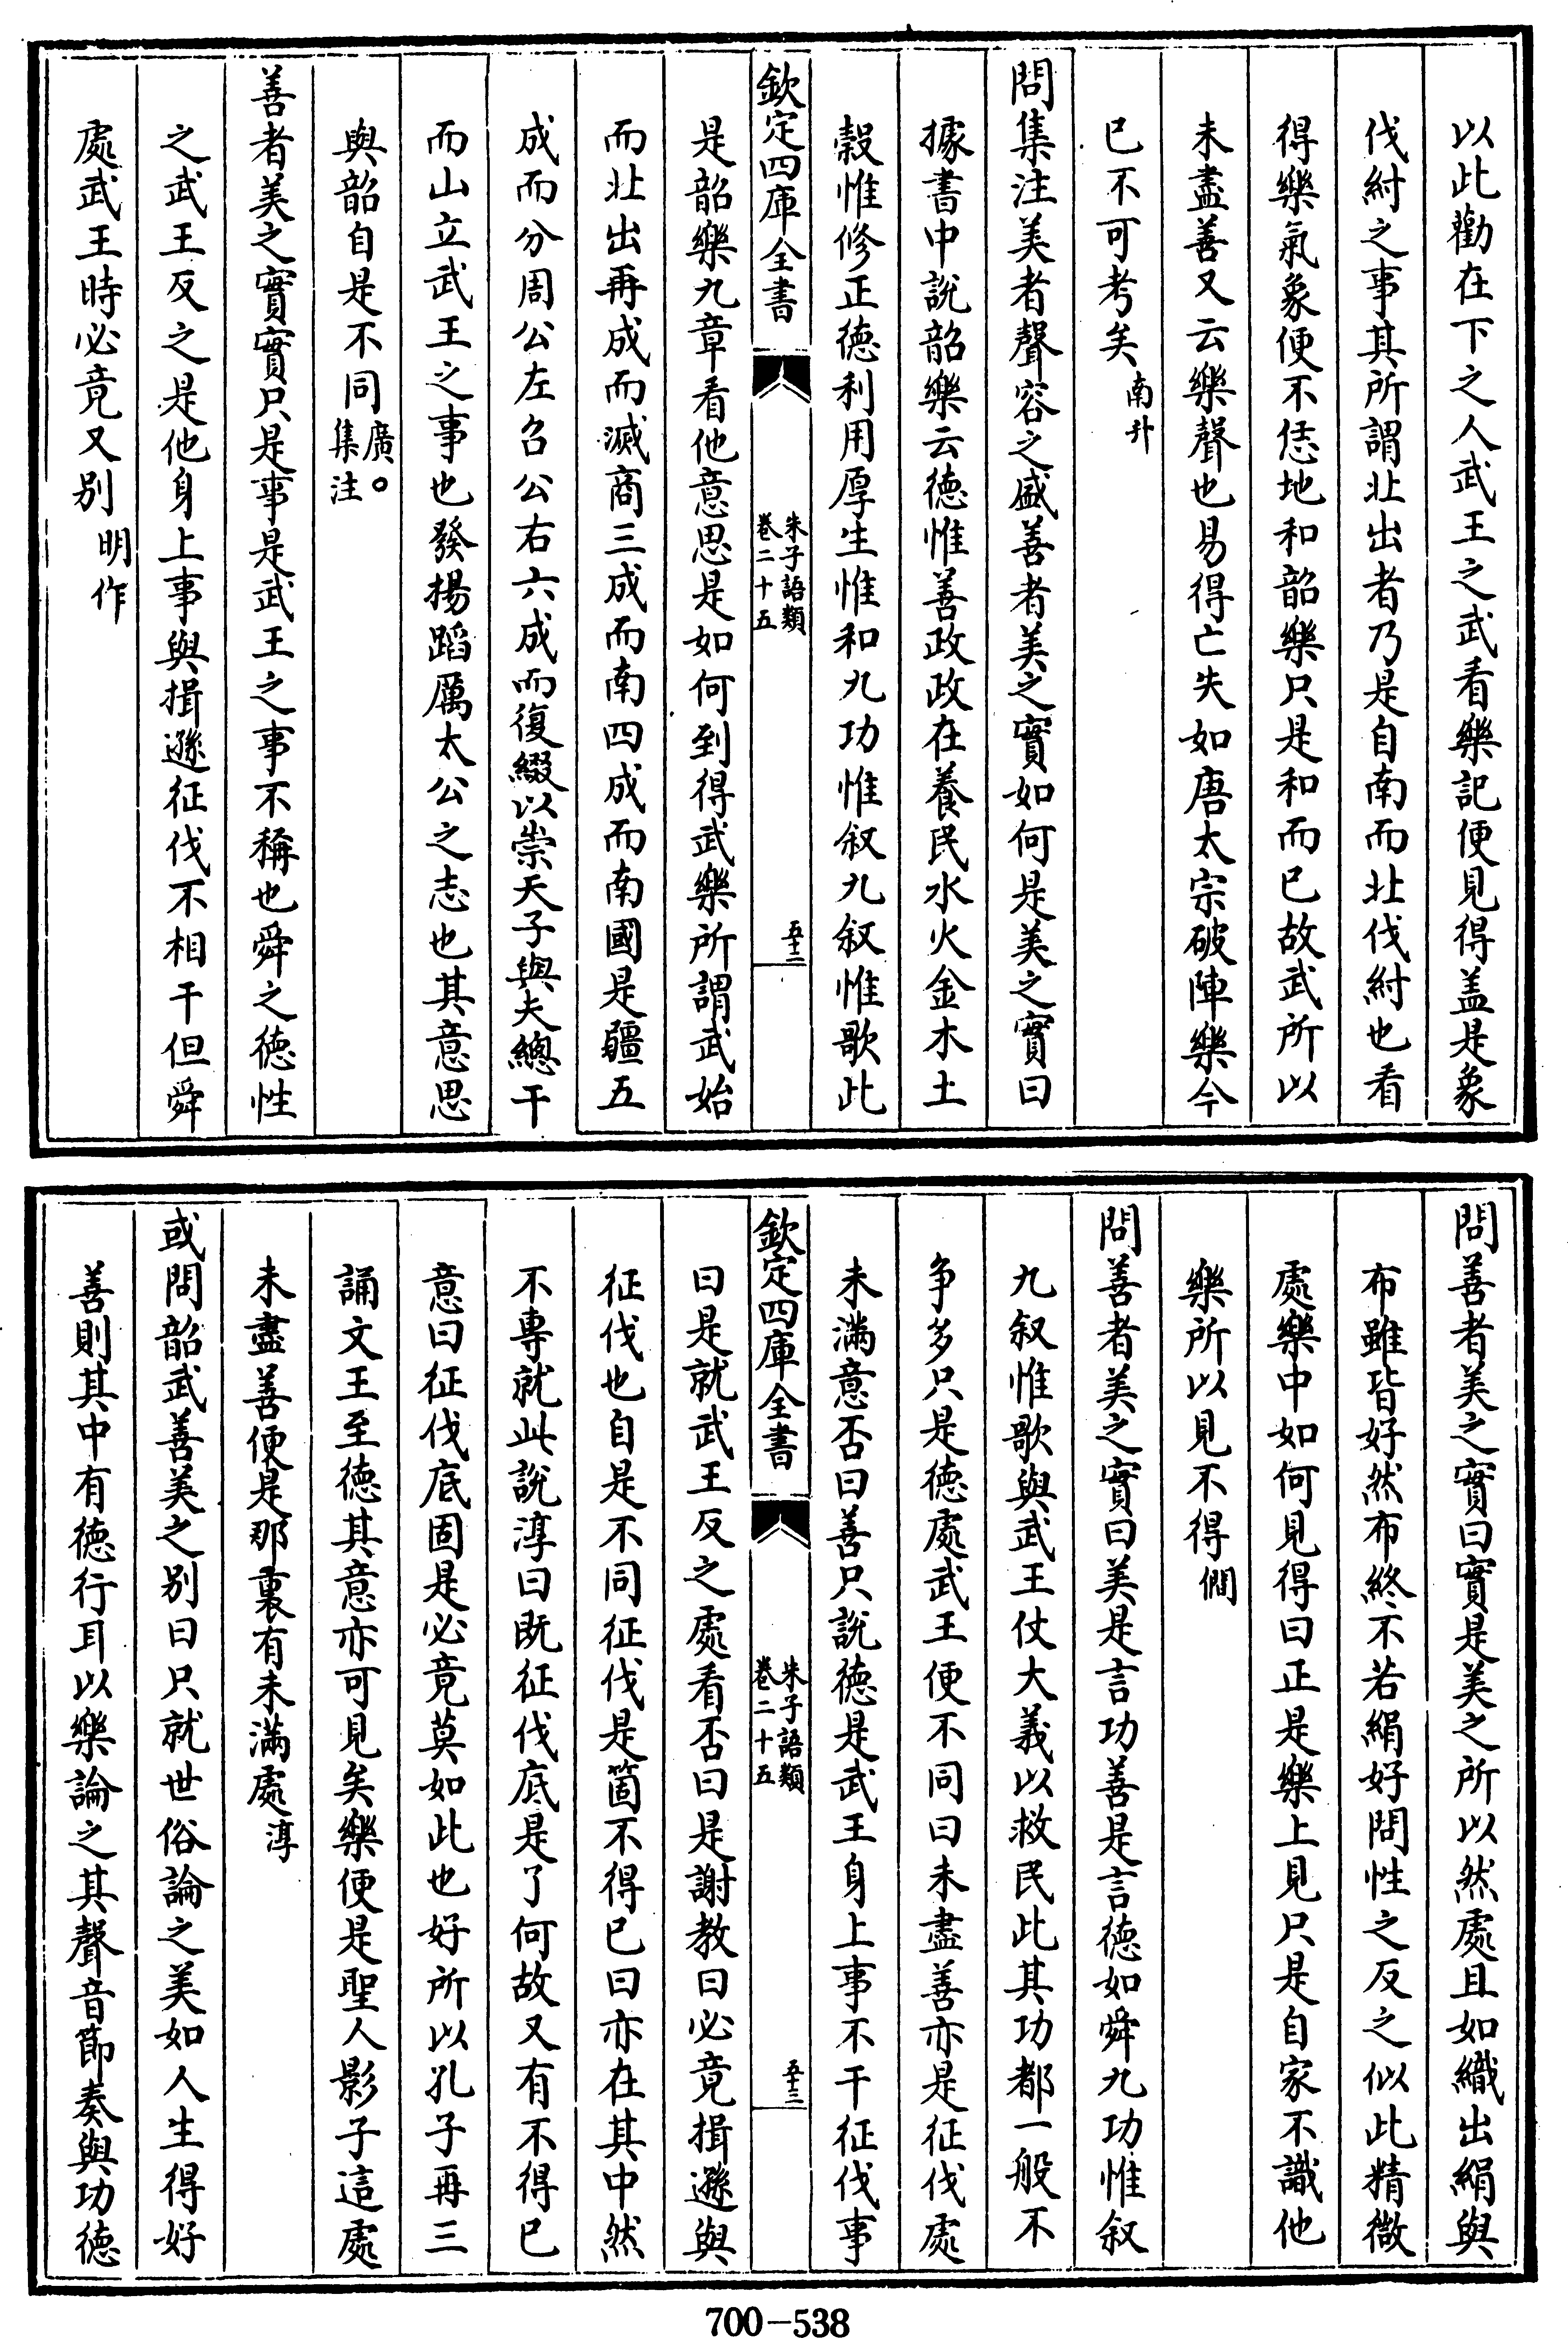 以此勸在下之人武王之武看樂記便見得盖是象
伐紂之事其所謂北出者乃是自南而北伐紂也看
得樂氣象便不恁地和韶樂只是和而已故武所以
未盡善又云樂聲也易得亡失如唐太宗破陣樂今
已不可考矣南升
問集注美者聲容之盛善者美之實如何是美之實曰
據書中說韶樂云德惟善政政在養民水火金木土
榖惟修正德利用厚生惟和九功惟叙九叙惟歌此
欽定四庫全書
朱子語類
卷二十五
五十二
是韶樂九章看他意思是如何到得武樂所謂武始
而北出再成而滅商三成而南四成而南國是疆五
成而分周公左召公右六成而復綴以崇天子與夫總干
而山立武王之事也發揚蹈厲太公之志也其意思
與韶自是不同廣○
集注
善者美之實實只是事是武王之事不稱也舜之德性
之武王反之是他身上事與揖遜征伐不相干但舜
處武王時必竟又别明作
問善者美之實曰實是美之所以然處且如織出絹與
布雖皆好然布終不若絹好問性之反之似此精微
處樂中如何見得曰正是樂上見只是自家不識他
樂所以見不得僩
問善者美之實曰美是言功善是言德如舜九功惟叙
九叙惟歌與武王仗大義以救民此其功都一般不
争多只是德處武王便不同曰未盡善亦是征伐處
未滿意否曰善只說德是武王身上事不干征伐事
欽定四庫全書
朱子語類
卷二十五
五十三
曰是就武王反之處看否曰是謝教曰必竟揖遜與
征伐也自是不同征伐是箇不得已曰亦在其中然
不專就此說淳曰既征伐底是了何故又有不得已
意曰征伐底固是必竟莫如此也好所以孔子再三
誦文王至德其意亦可見矣樂便是聖人影子這處
未盡善便是那裏有未滿處淳
或問韶武善美之别曰只就世俗論之美如人生得好
善則其中有德行耳以樂論之其聲音節奏與功德
700—538